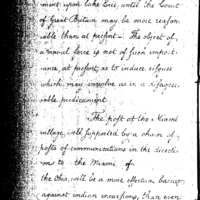 ment upon lake Erie, until the Court
of Great Britain may be more reason-
able than at present. The object of,
a naval force is not of such import
ance, at present, as to induce
which may involve us in a disagree-
able predicament.
The post at the Miami
village, well supported by a chain of
posts of communications in the directi-
on to the Miami of
the Ohio, will be a more effectual barrier
against indian incursions, than even